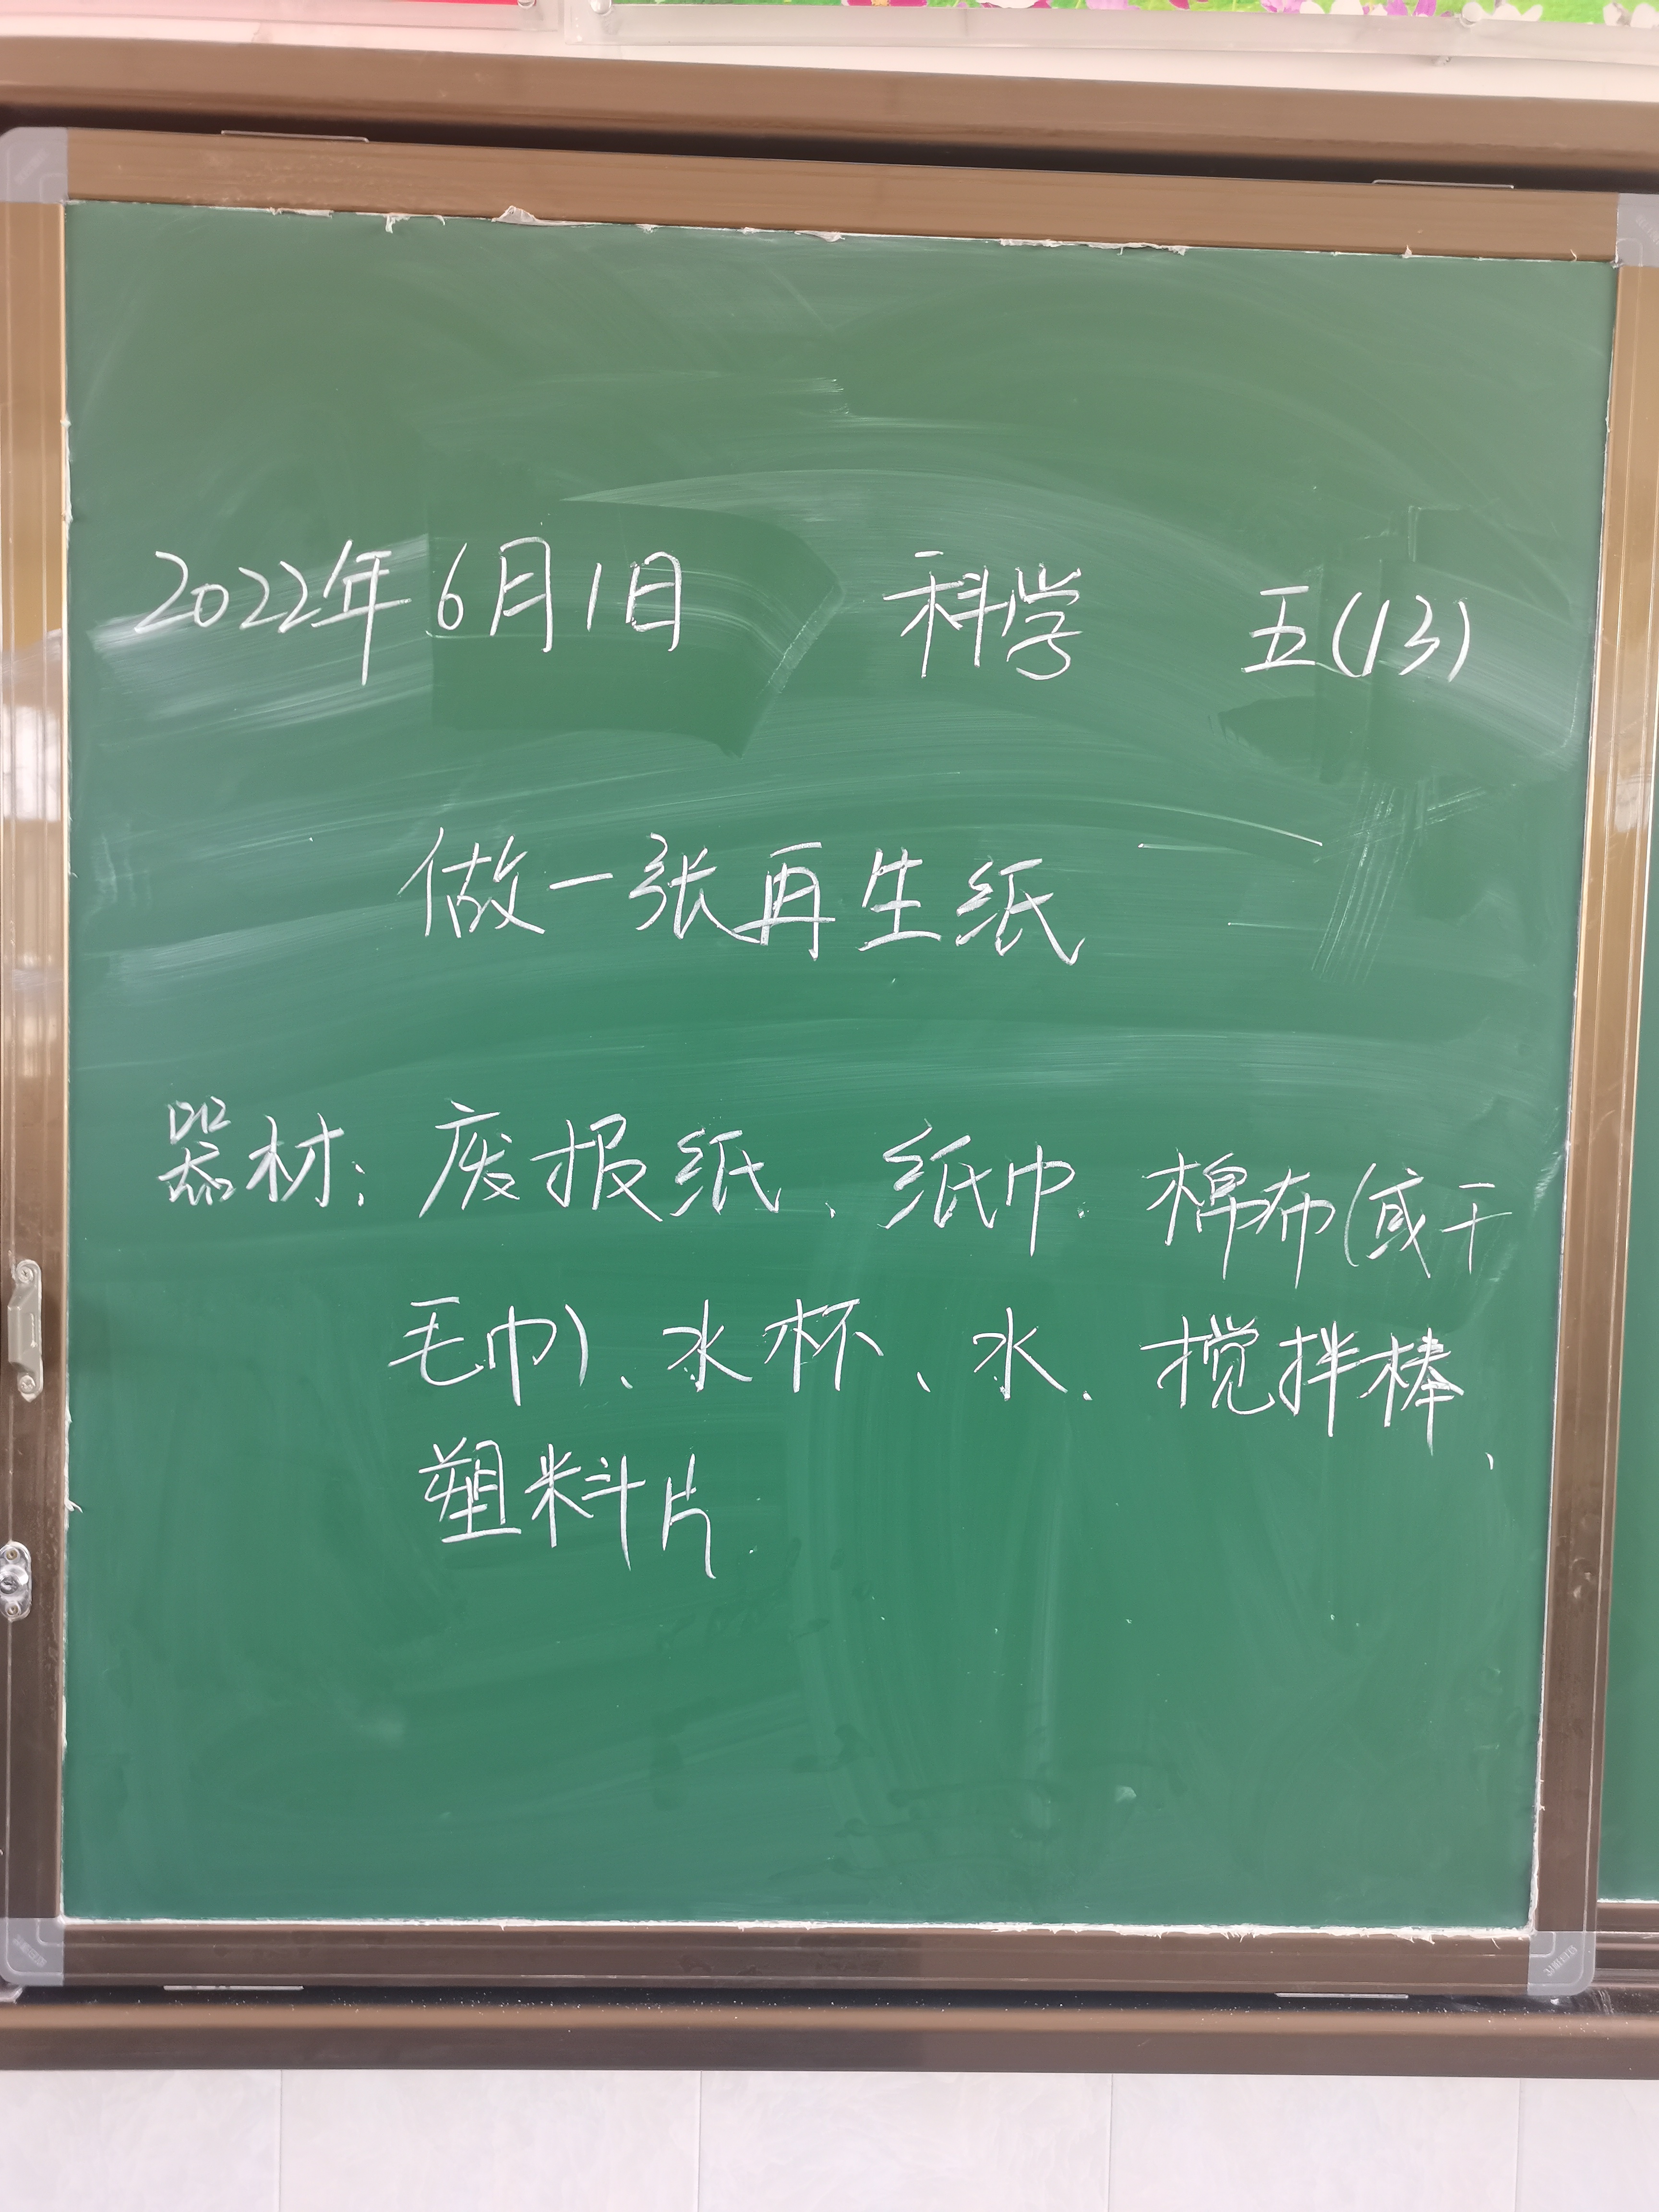 2022年6月1日 科学 五(13)
做一张再生纸
器材：废报纸、纸巾、棉布(或干
毛巾)、水杯、水、搅拌棒、
塑料片.